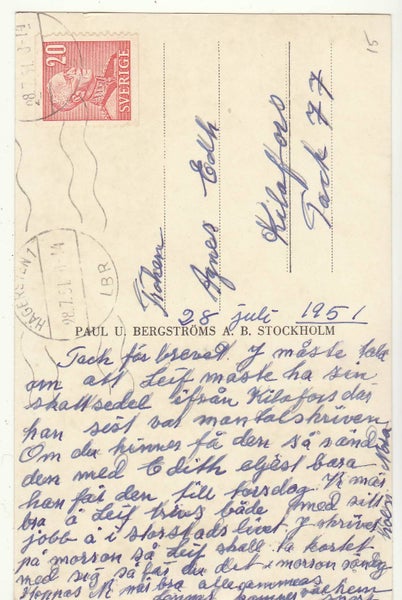 15
20
SVERIGE
28.7.51.8-14
HÄGERSTEN 1
28.7.51.8-14
LBR
Fröken
Agnes Edh
Kilafors
Fack 77
28 juli 1951
PAUL U. BERGSTRÖMS A. B. STOCKHOLM
Tack för brevet. J måste tala
om att Leif måste ha sin
skattsedel ifrån Kilafors där
han sist var mantalskriven
Om du hinner få den så sänd
den med Edith eljäst bara
han får den till torsdag. Vi mår
bra å Leif trivs både med sitt
jobb å i storstadslivet J skriver
på morson så Leif skall ta kortet
med sig så får du det i morson
Hoppas Ni mår bra allesammeas
kommer hem